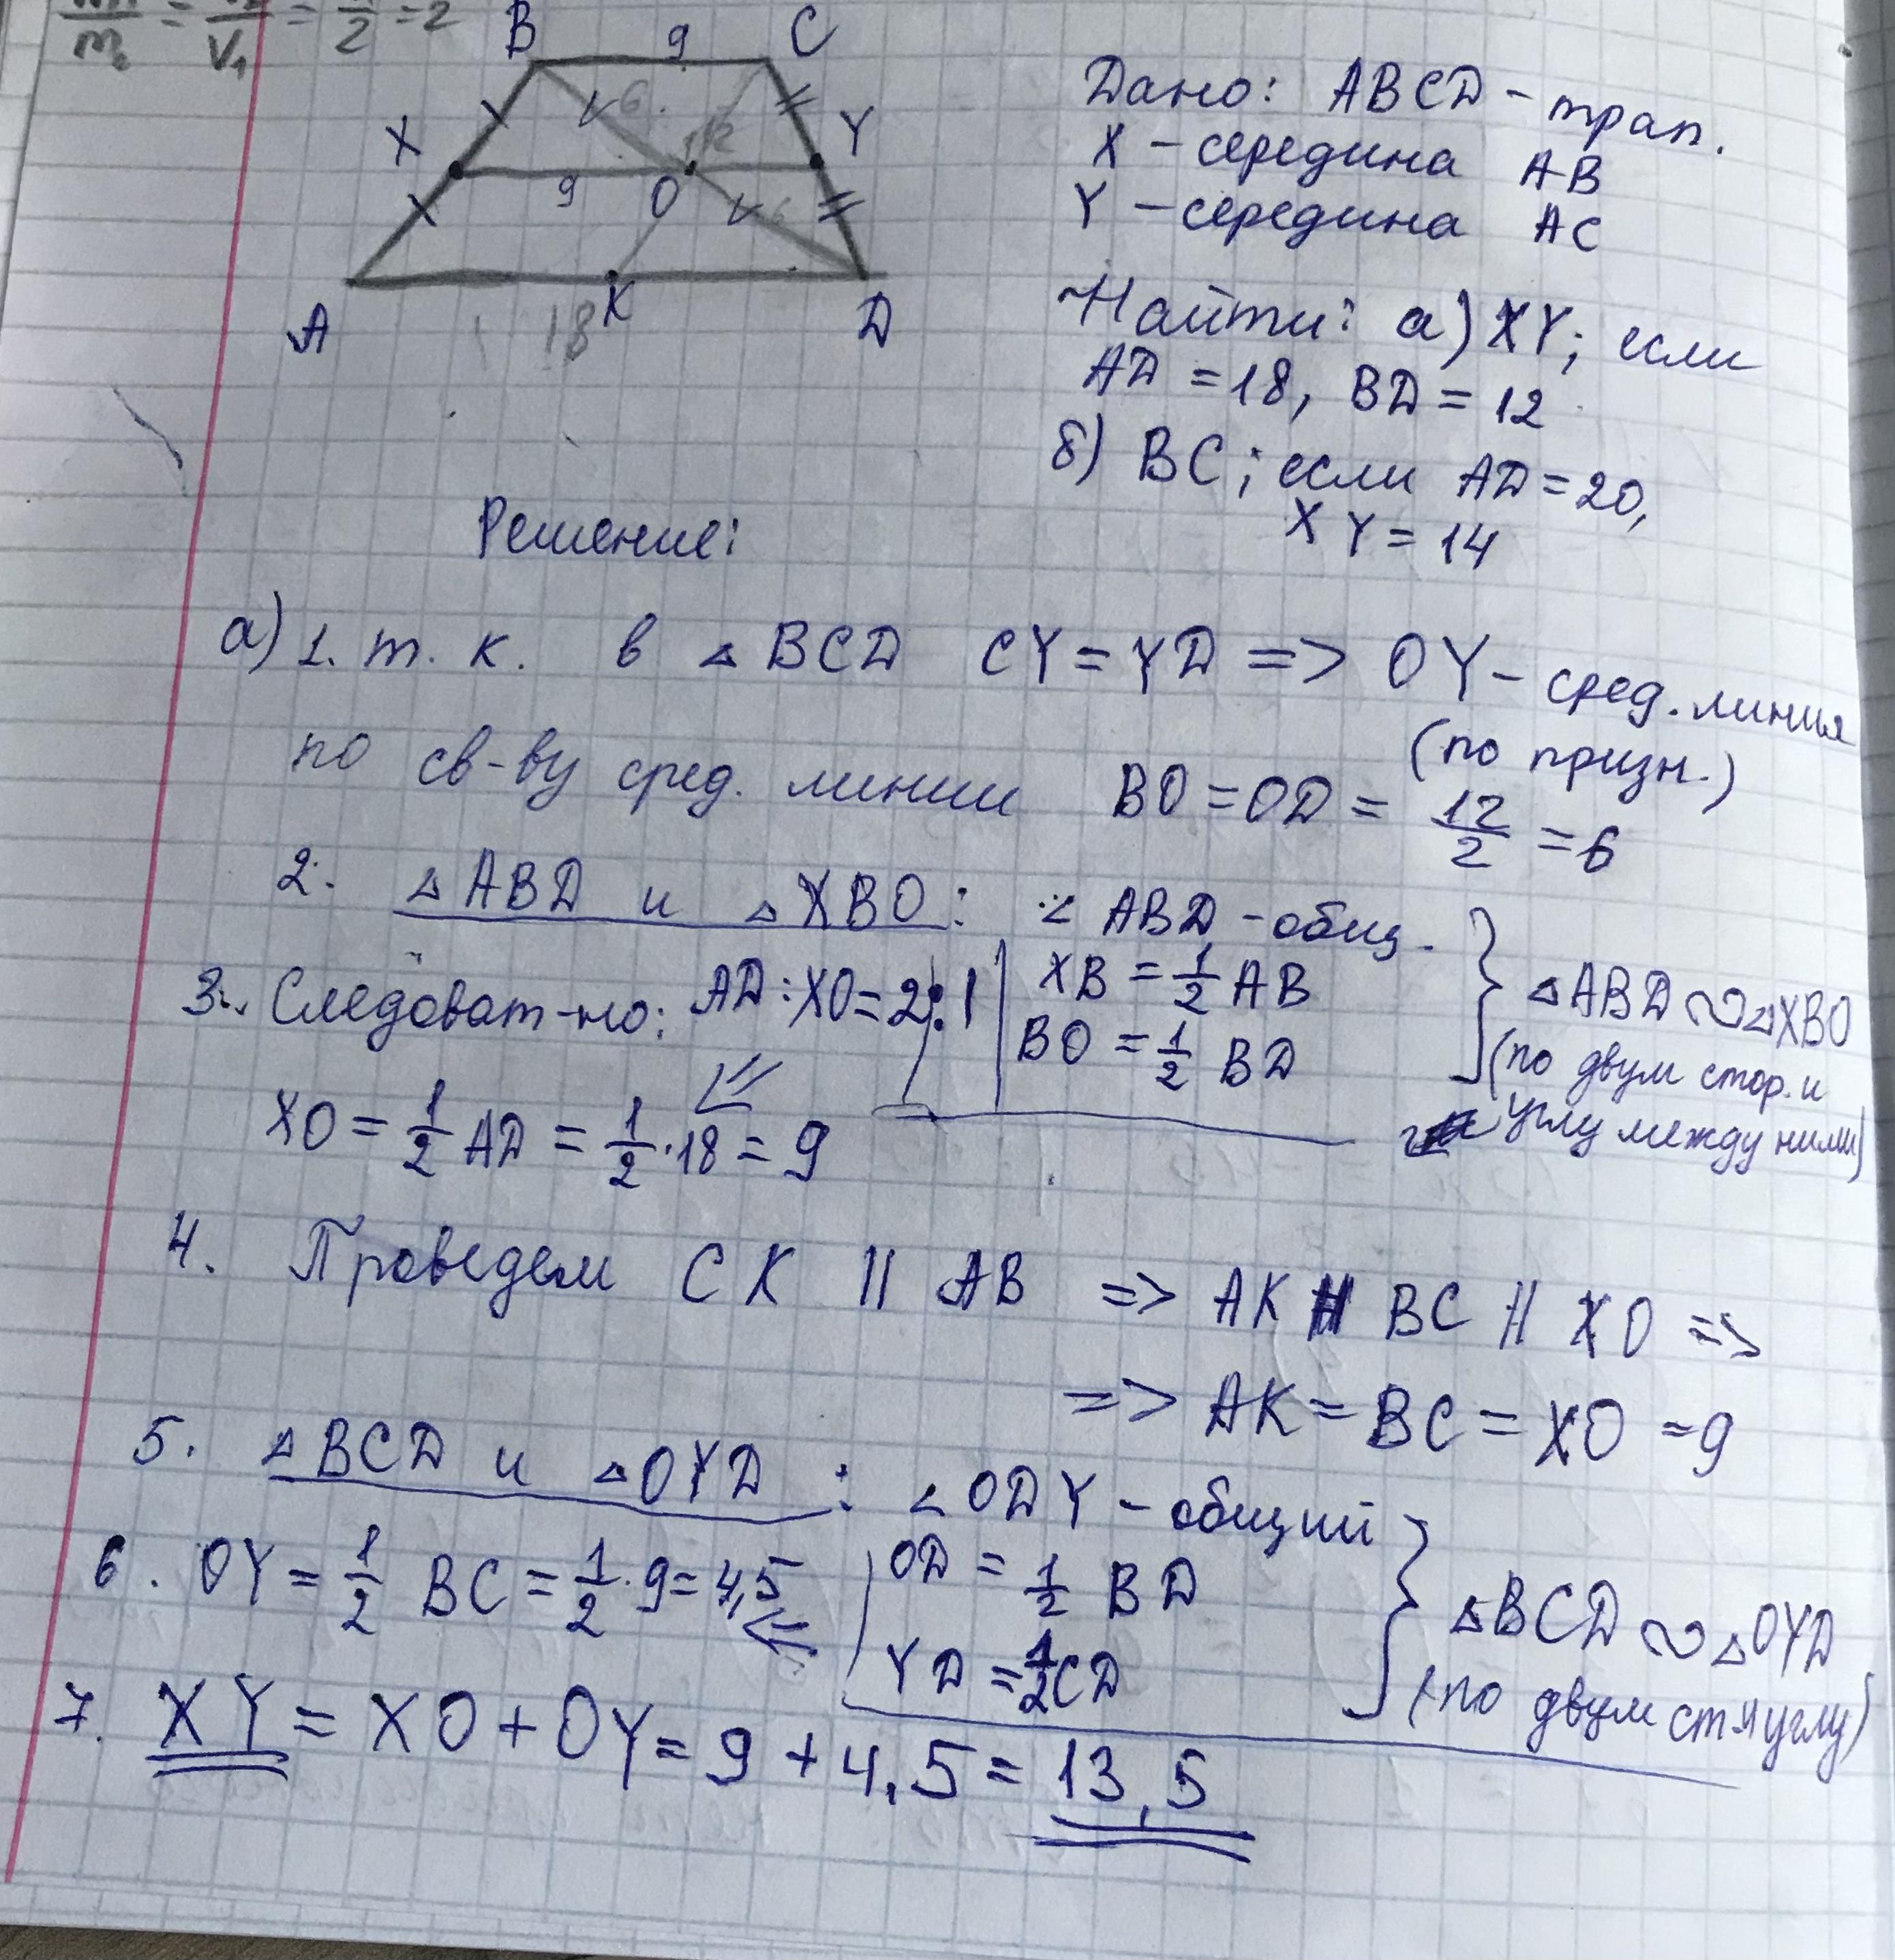 m₂ = V₁ = 2 = 2
B 9 C
X 6 12 Y
9 O 6
A 18 K D
Дано: ABCD - трап.
X - середина AB
Y - середина AC
Найти: а) XY; если
AD = 18, BD = 12
б) BC; если AD = 20,
XY = 14
Решение:
а) 1. т. к. в ▵ BCD CY = YD => OY - сред. линия
(по призн.)
по св-ву сред. линии BO = OD = 12/2 = 6
2. ▵ ABD и ▵ XBO: ∠ ABD - общ.
XB = 1/2 AB
BO = 1/2 BD
▵ABD ∾ ▵XBO
(по двум стор. и
углу между ними)
3. Следоват-но: AD : XO = 2 : 1
XO = 1/2 AD = 1/2 · 18 = 9
4. Проведем CK || AB => AK || BC || XO =>
=> AK = BC = XO = 9
5. ▵ BCD и ▵ OYD : ∠ ODY - общий
OD = 1/2 BD
YD = 1/2 CD
▵BCD ∾ ▵OYD
(по двум ст и углу)
6. OY = 1/2 BC = 1/2 · 9 = 4,5
7. XY = XO + OY = 9 + 4,5 = 13,5